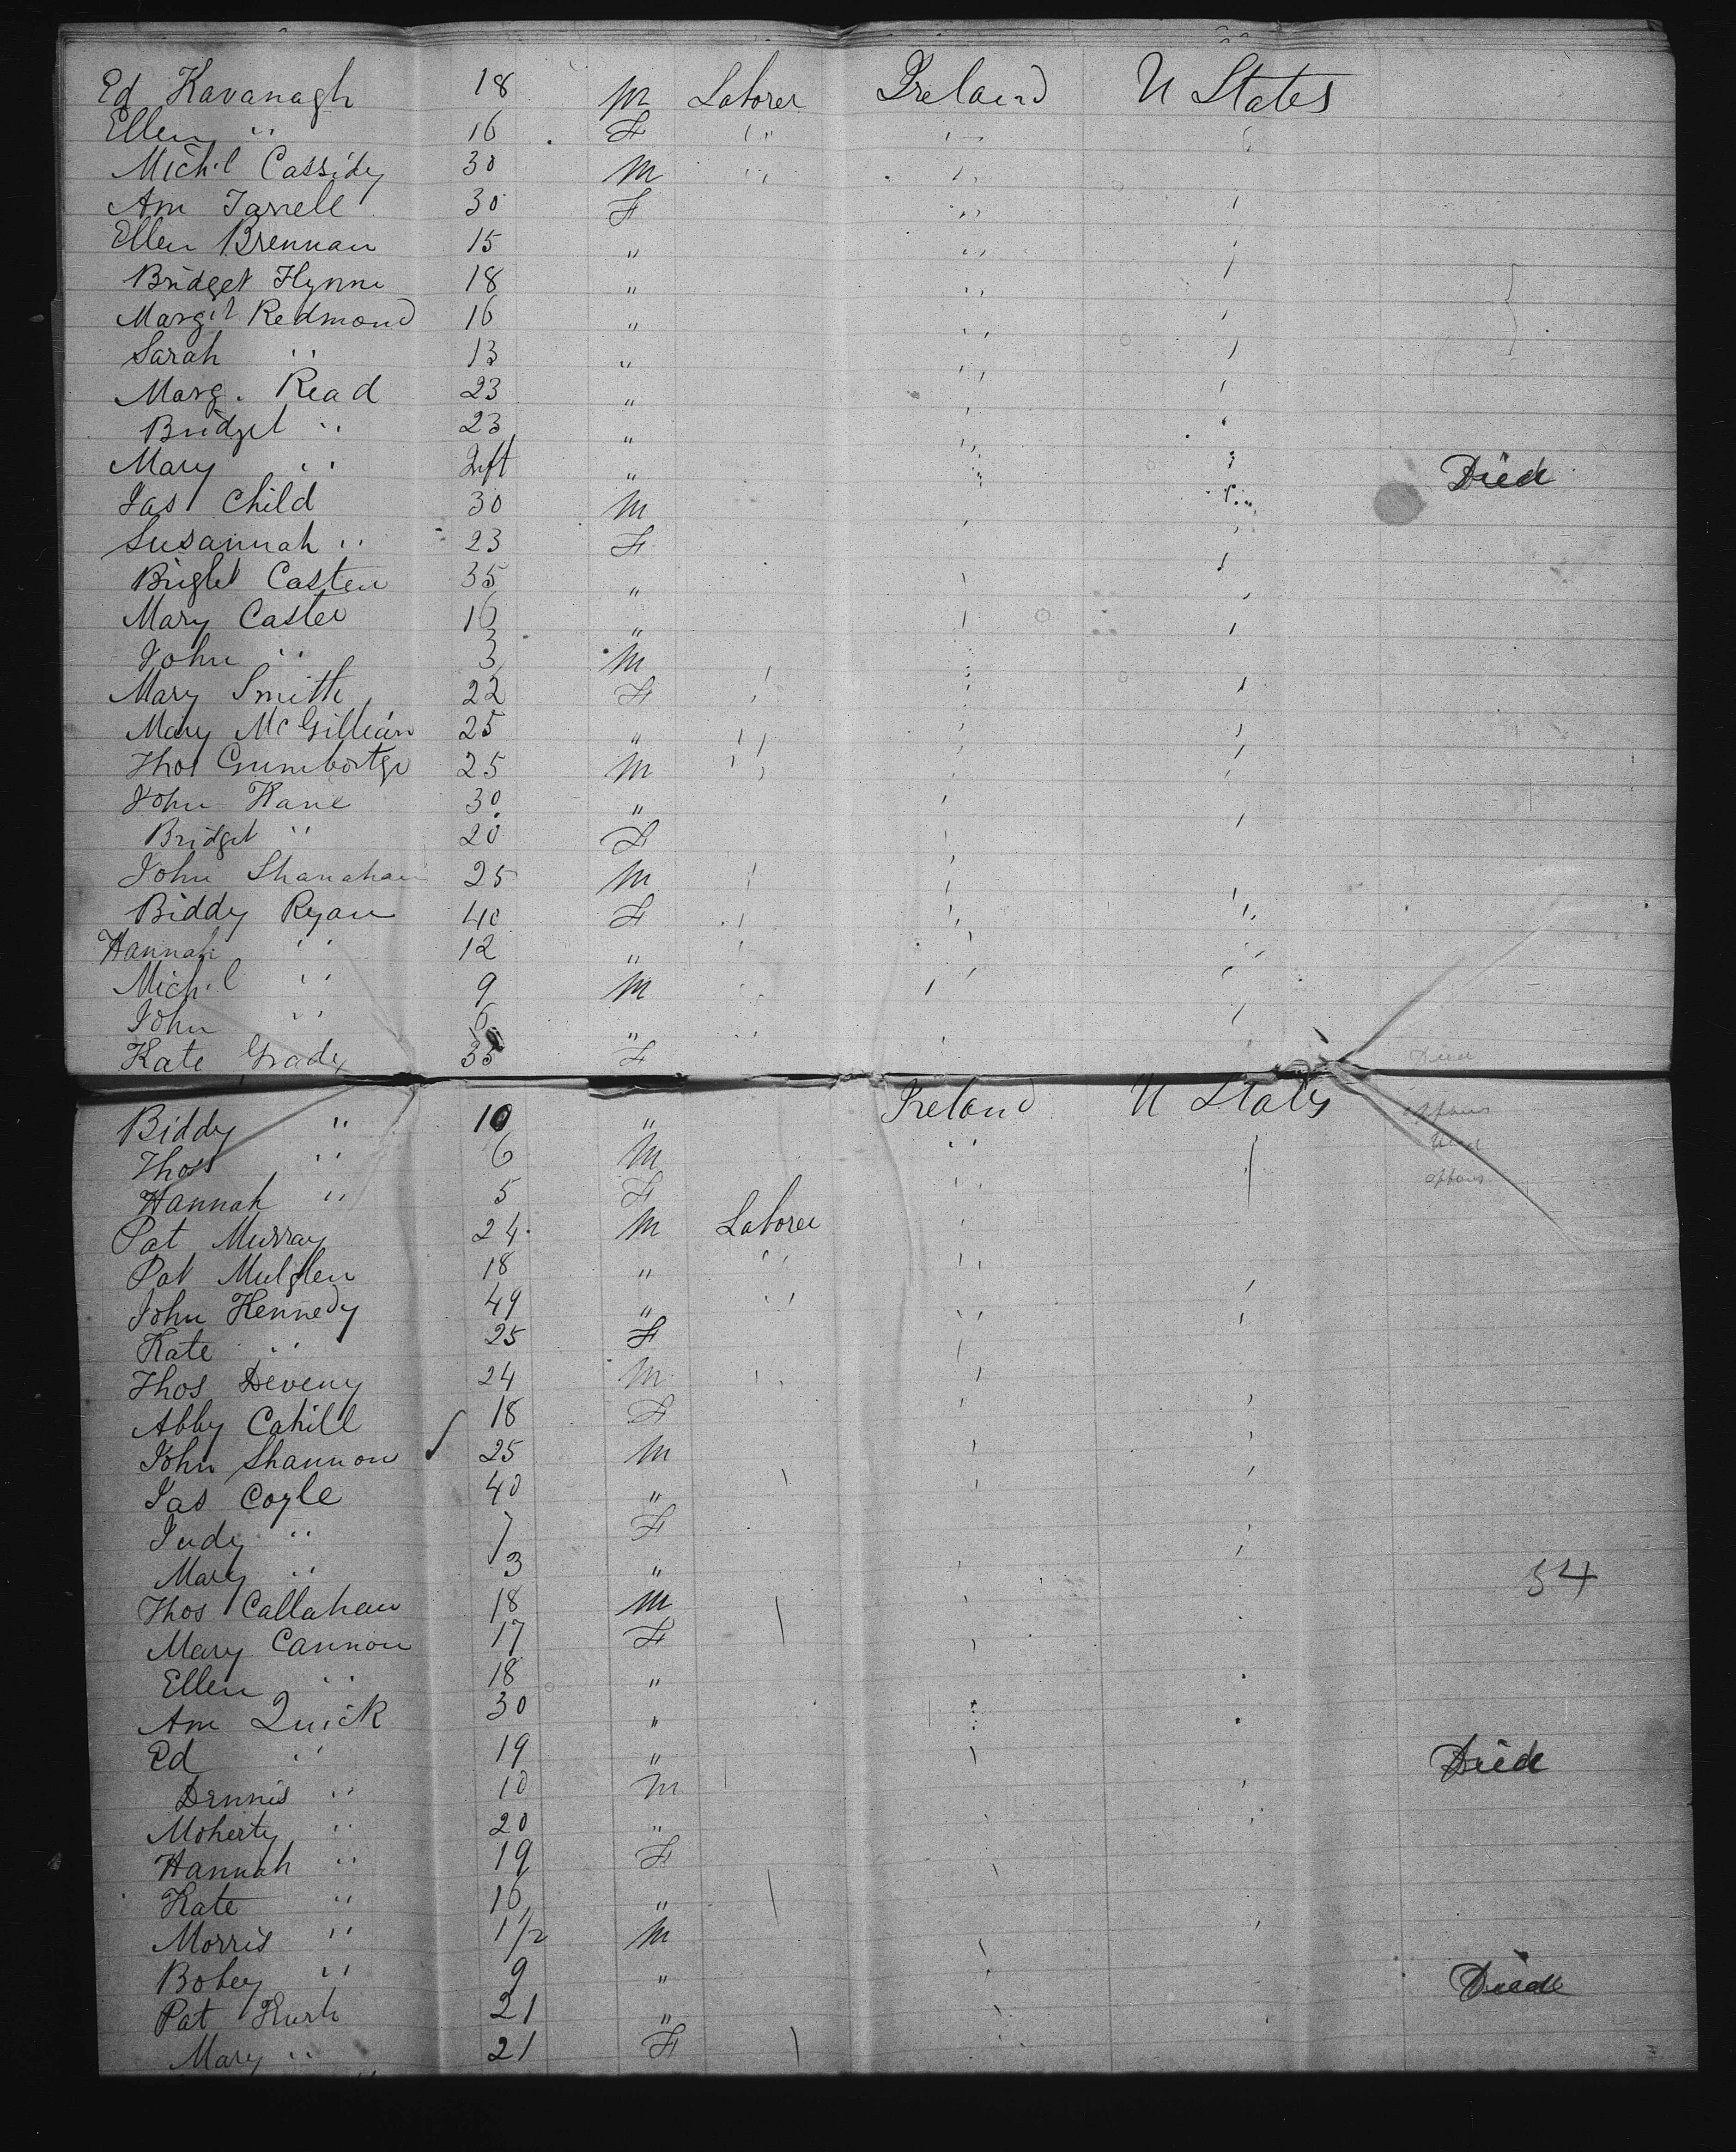 Ed Kavanagh 18 m Laborer Ireland U States
Ellen " 16 F " "
Mich'l Cassidy 30 M " "
Ann Farrell 30 F "
Ellen Brennan 15 " "
Bridget Flynn 18 " "
Margt Redmond 16 " "
Sarah " 13 " "
Marg. Read 23 "
Bridget " 23 " "
Mary " Inft " " Died
Jas Child 30 M
Susannah " 23 F
Bright Casten 35 "
Mary Caster 16 "
John " 3 M
Mary Smith 22 F
Mary McGillian 25 " "
Thos 25 M "
John Kane 30 "
Bridget " 20 F
John Shanahan 25 M
Biddy Ryan 40 F
Hannah " 12 "
Mich'l " 9 M
John " 6 "
Kate Grady 35 F Died
Biddy " 10 " Ireland U States
Thos " 6 M "
Hannah " 5 F "
Pat Murray 24 M Laborer
Pat 18 " " "
John Kennedy 49 " " "
Kate " 25 F
Thos Deveny 24 M "
Abby Cahill 18 F
John Shannon 25 M
Jas Coyle 40 "
Judy " 7 F
Mary " 3 " 54
Thos Callahan 18 M
Mary Cannon 17 F
Ellen " 18 "
Ann Quick 30 "
Ed " 19 " Died
Dennis " 10 M
Moherty " 20 "
Hannah " 19 F
Kate " 16 "
Morris " 1 1/2 M
Bobey " 9 " Died
Pat 21 "
Mary " 21 F